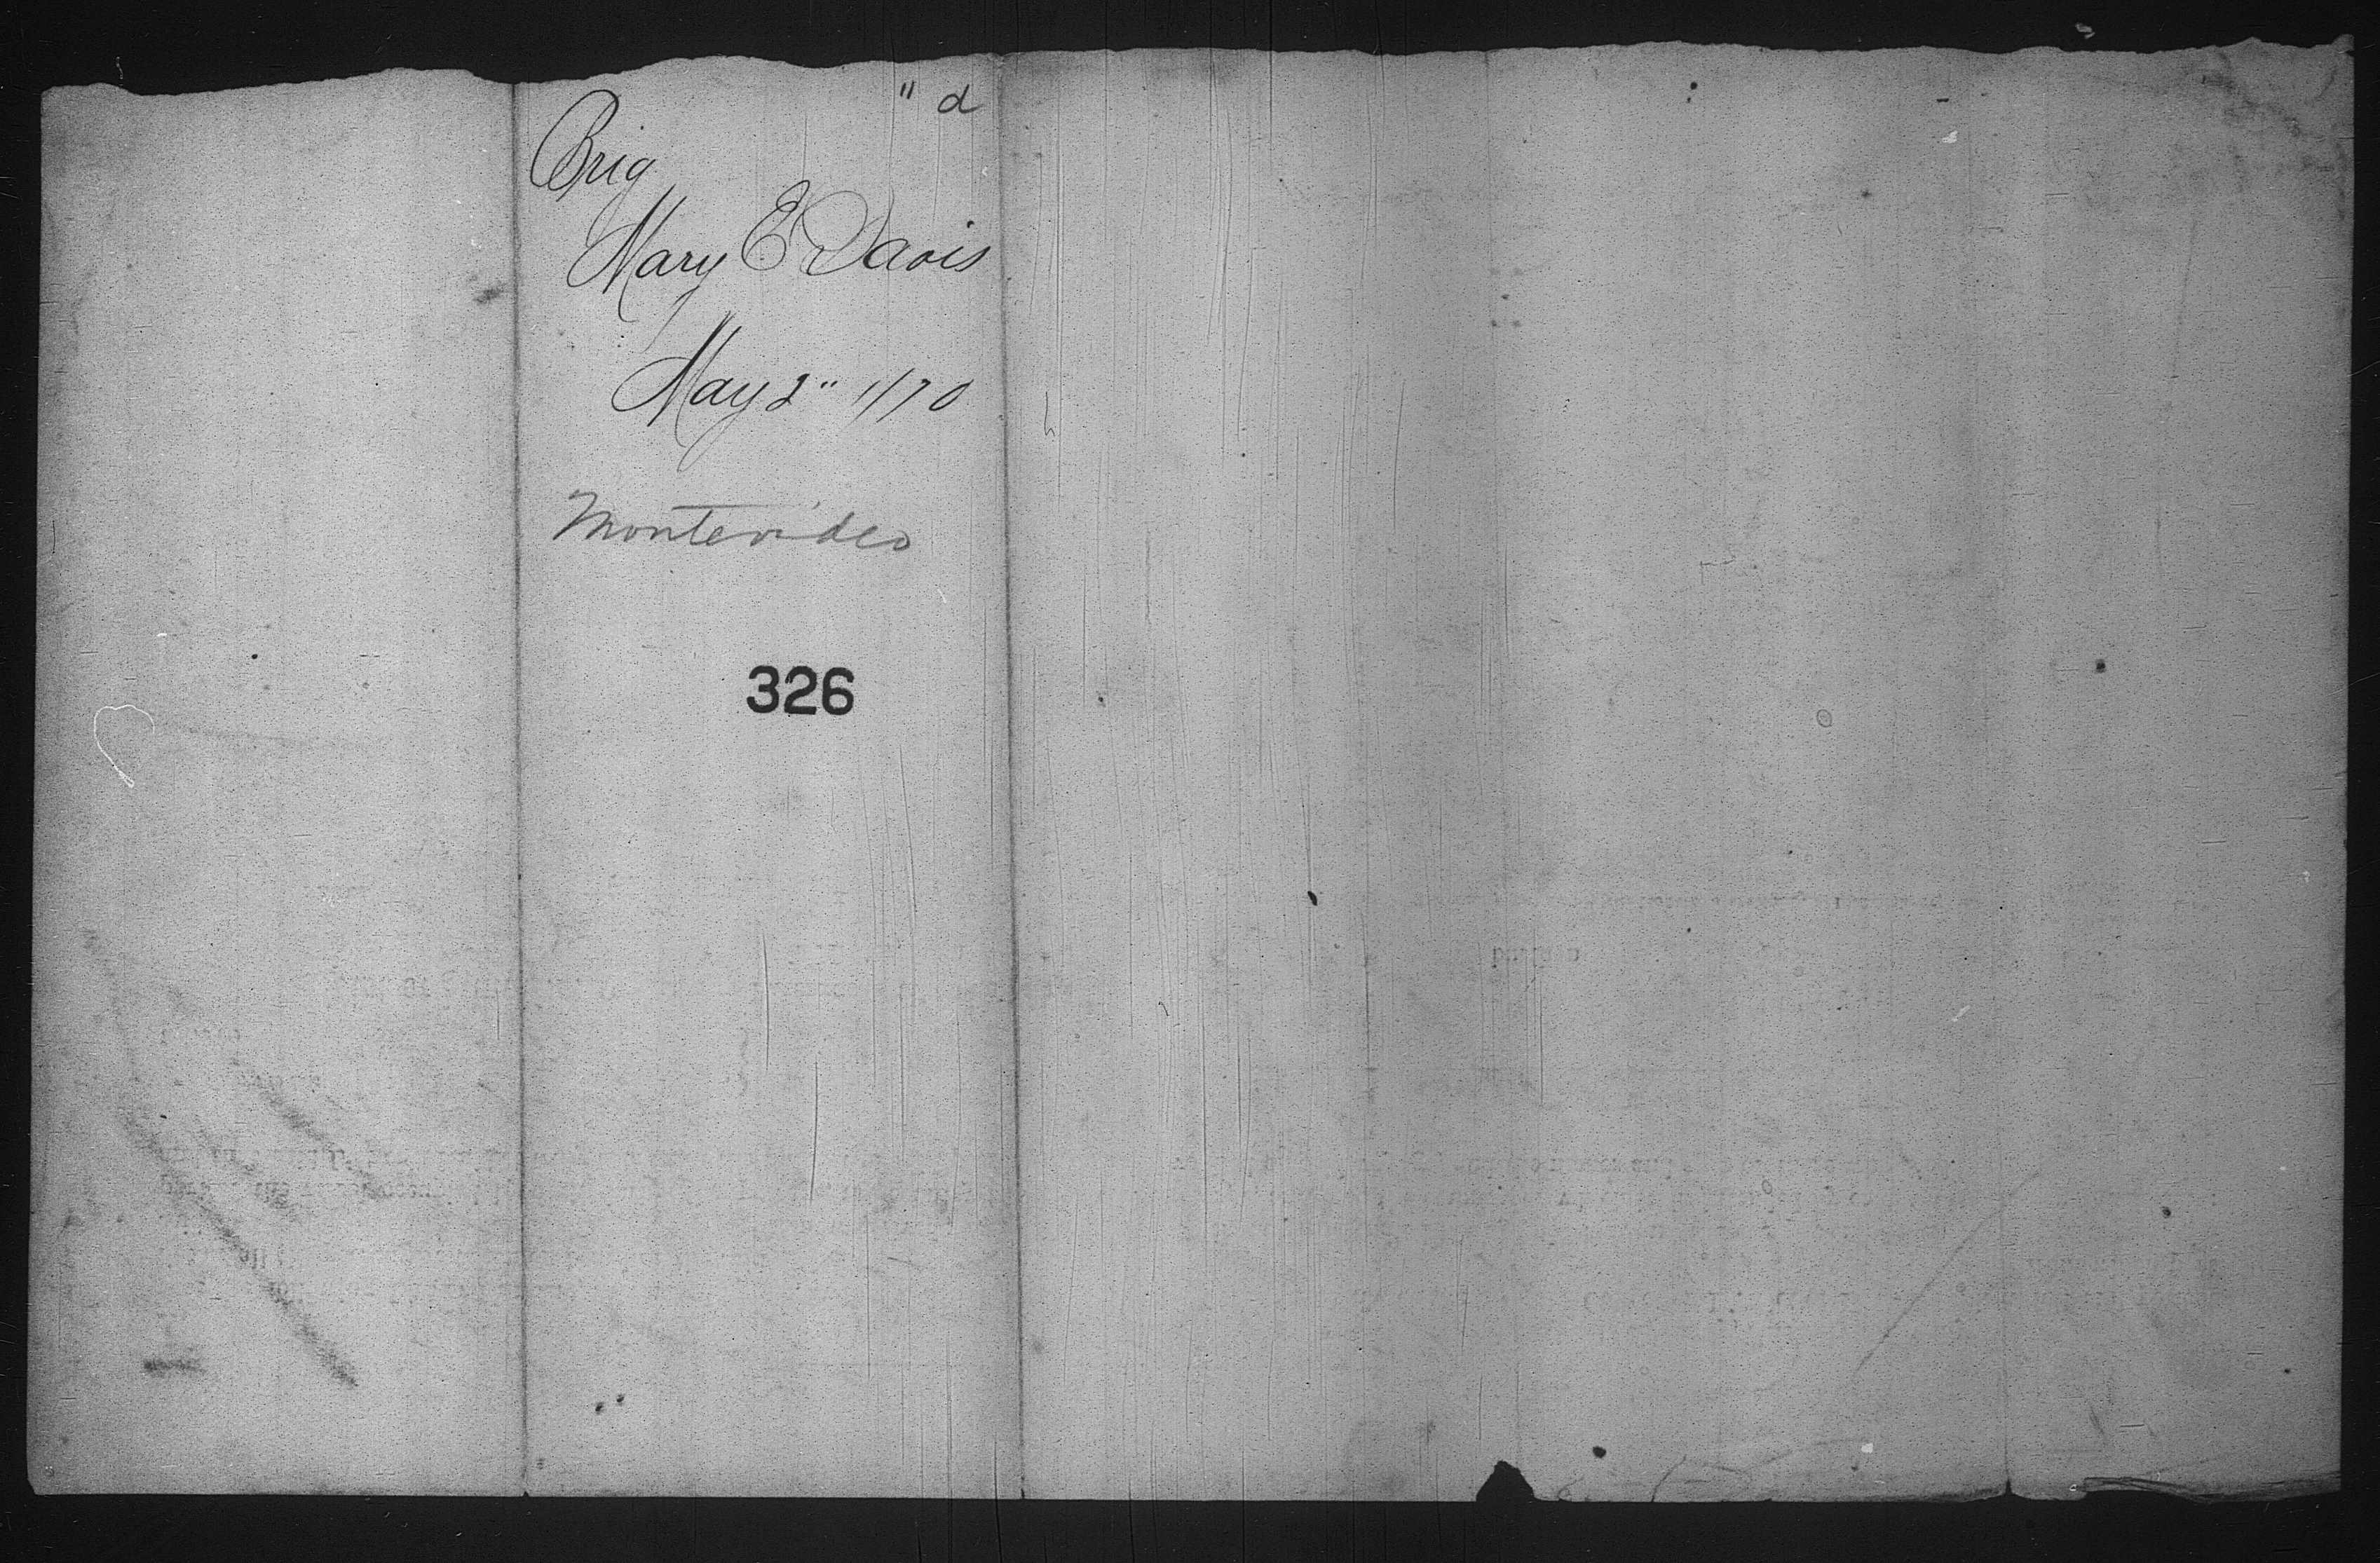 " d
Brig
Mary E Davis
May 2" 1/70
Montevideo
326